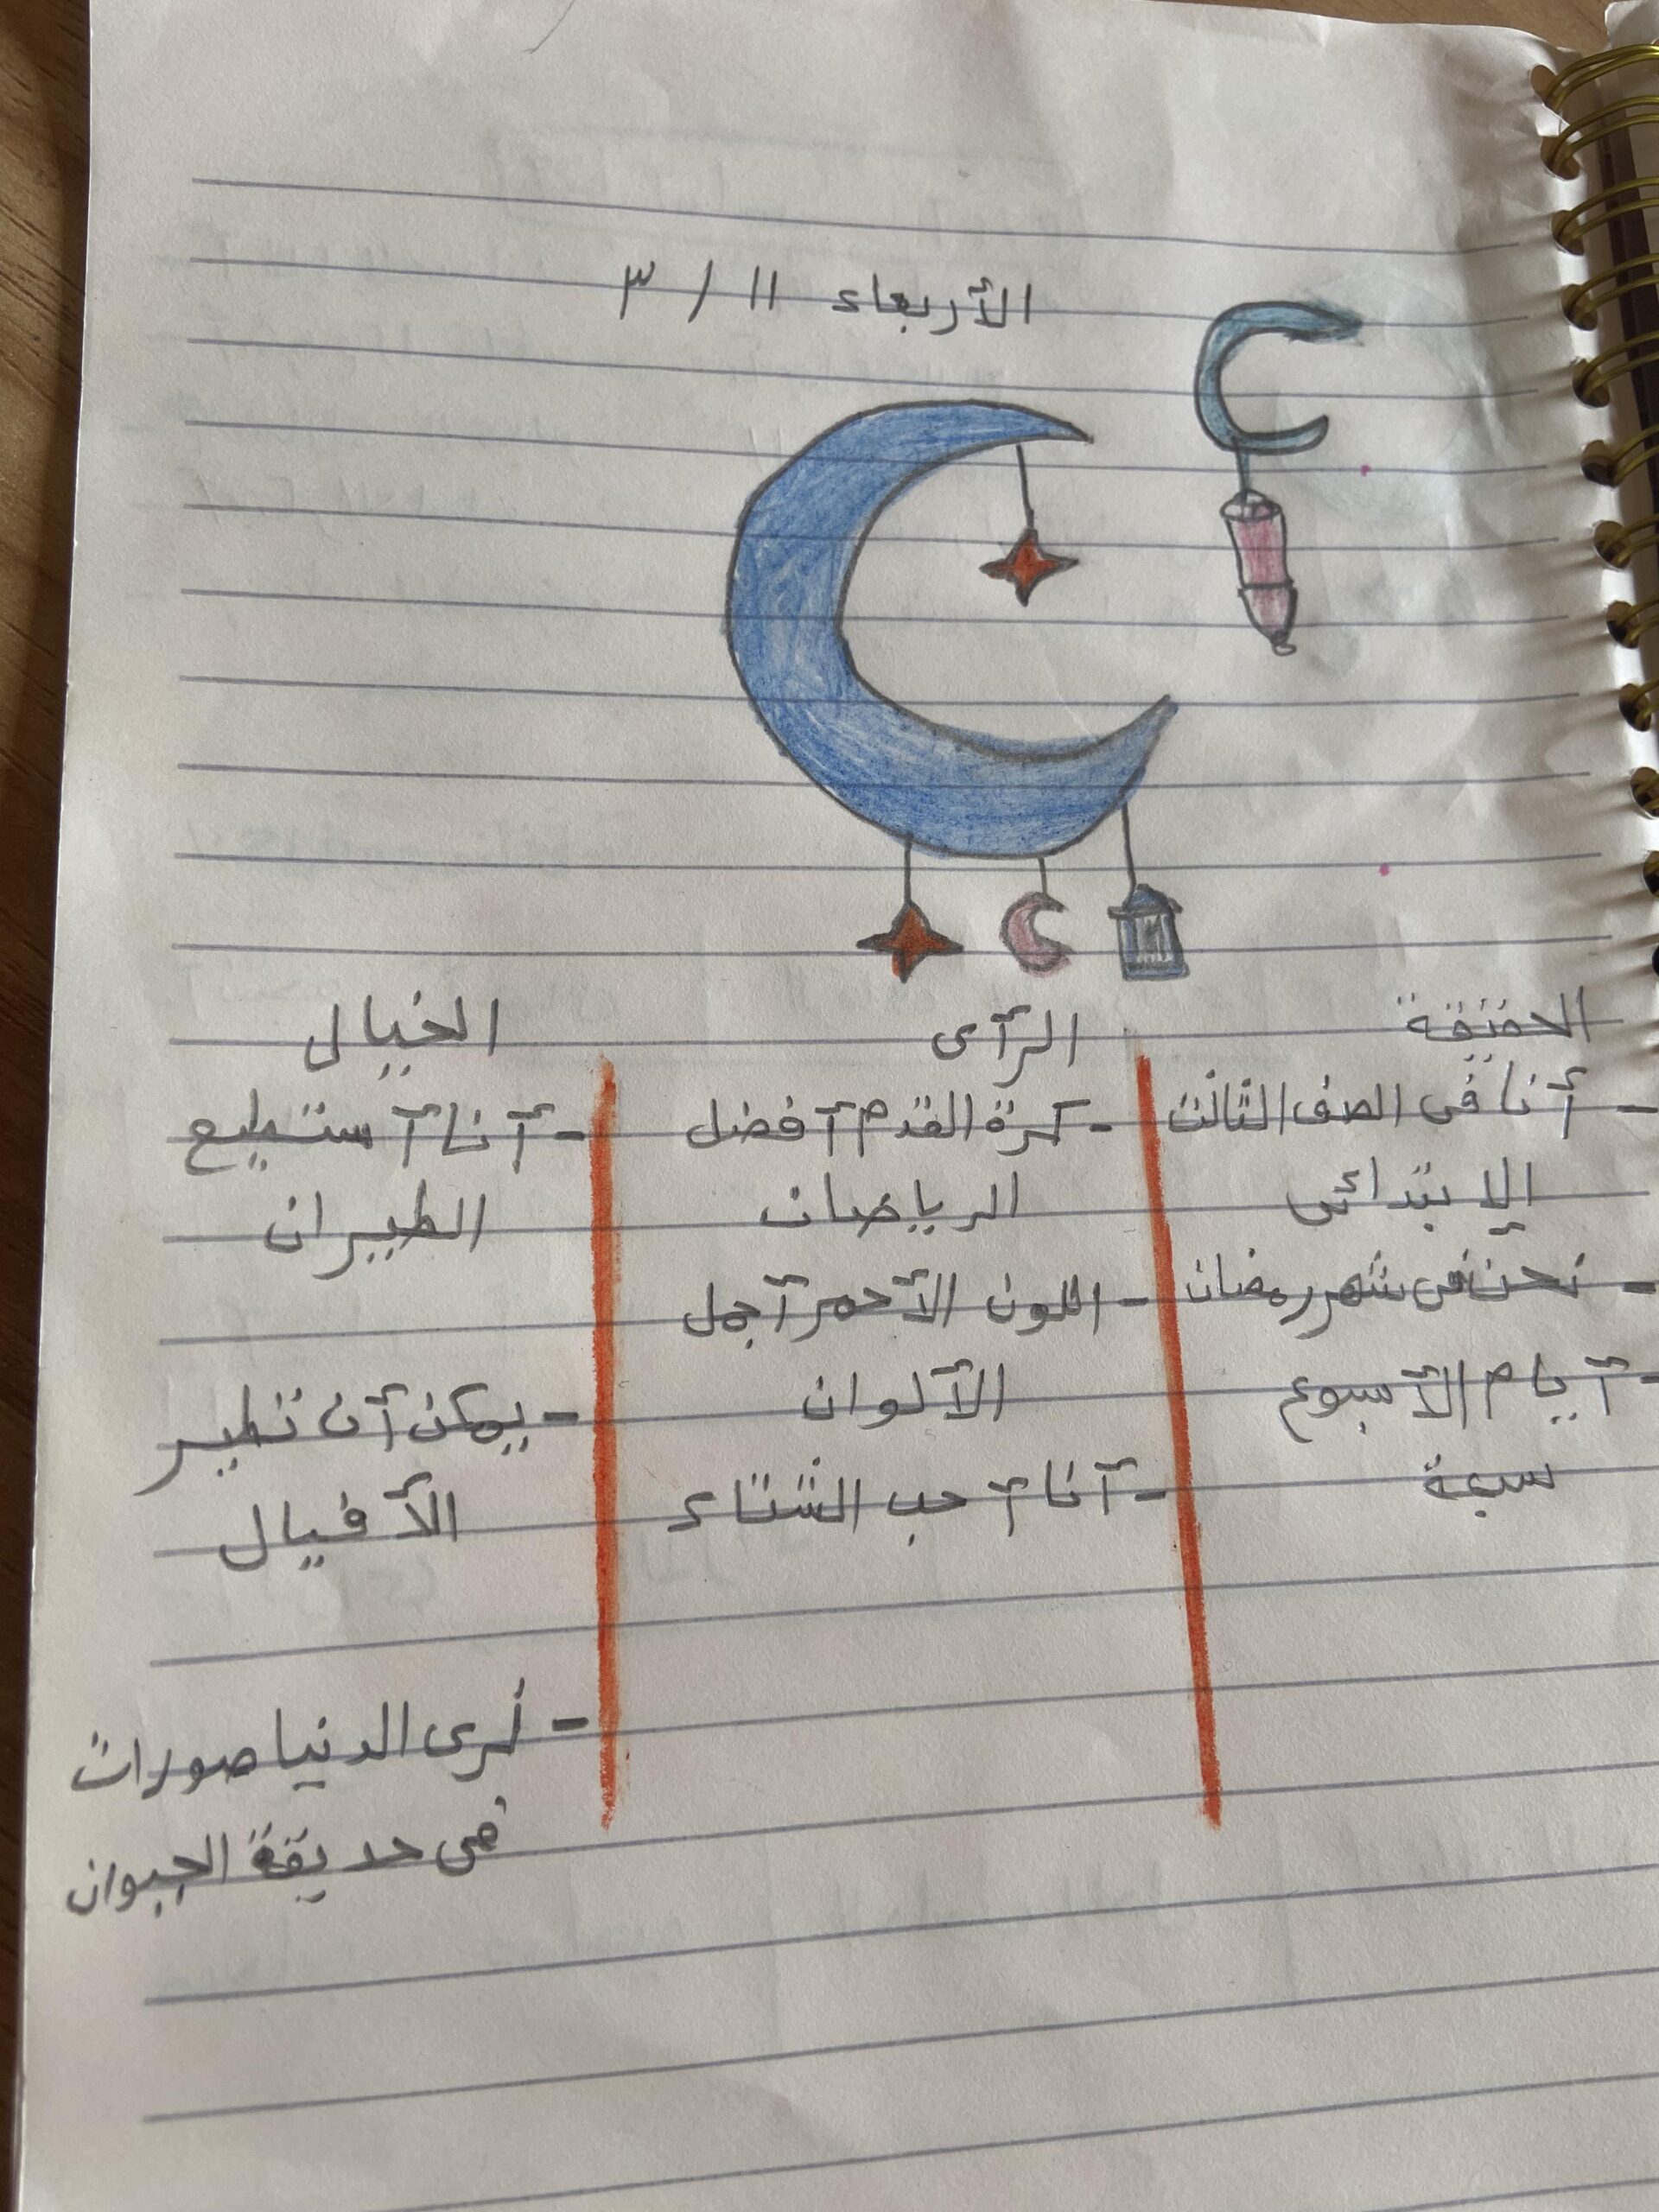 الأربعاء ١١ / ٣
الحقيقة
- أنا في الصف الثالث
الإبتدائى
- نحن في شهر رمضان
- أيام الأسبوع
سبعة
الرأى
- كرة القدم أفضل
الرياضات
- اللون الأحمر أجمل
الألوان
- أنا أحب الشتاء
الخيال
- أنا أستطيع
الطيران
- يمكن أن تطير
الأفيال
- نرى الدنيا صورات
فى حديقة الحيوان